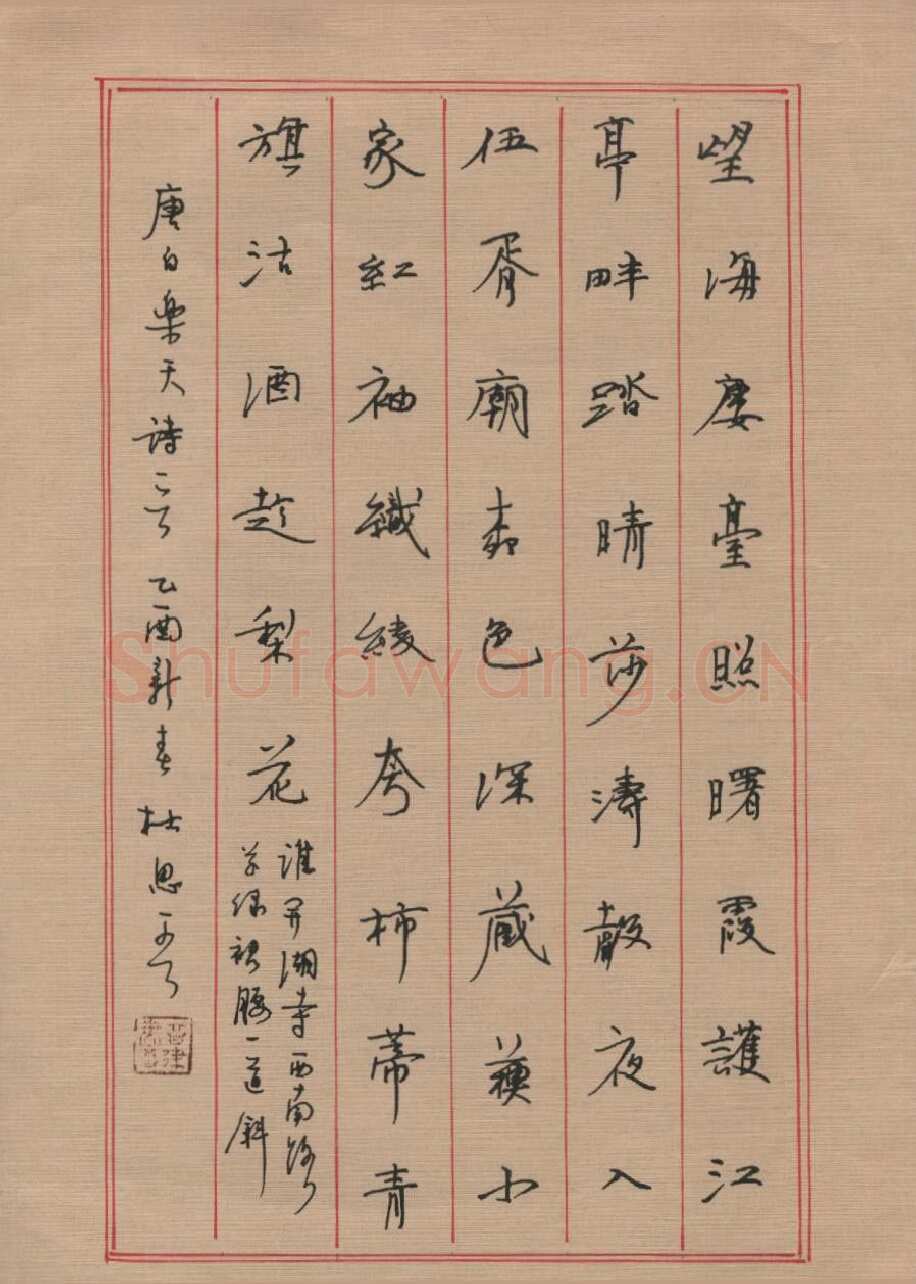 望海廔臺照曙霞護江
亭畔踏晴莎濤聲夜入
伍胥廟桺色深藏蘓小
家紅袖織綾夸柿蒂青
旗沽酒趁梨花
誰開湖寺西南路
草綠裙腰一道斜
唐白樂天詩 乙酉新春 杜思
Shufawang.CN